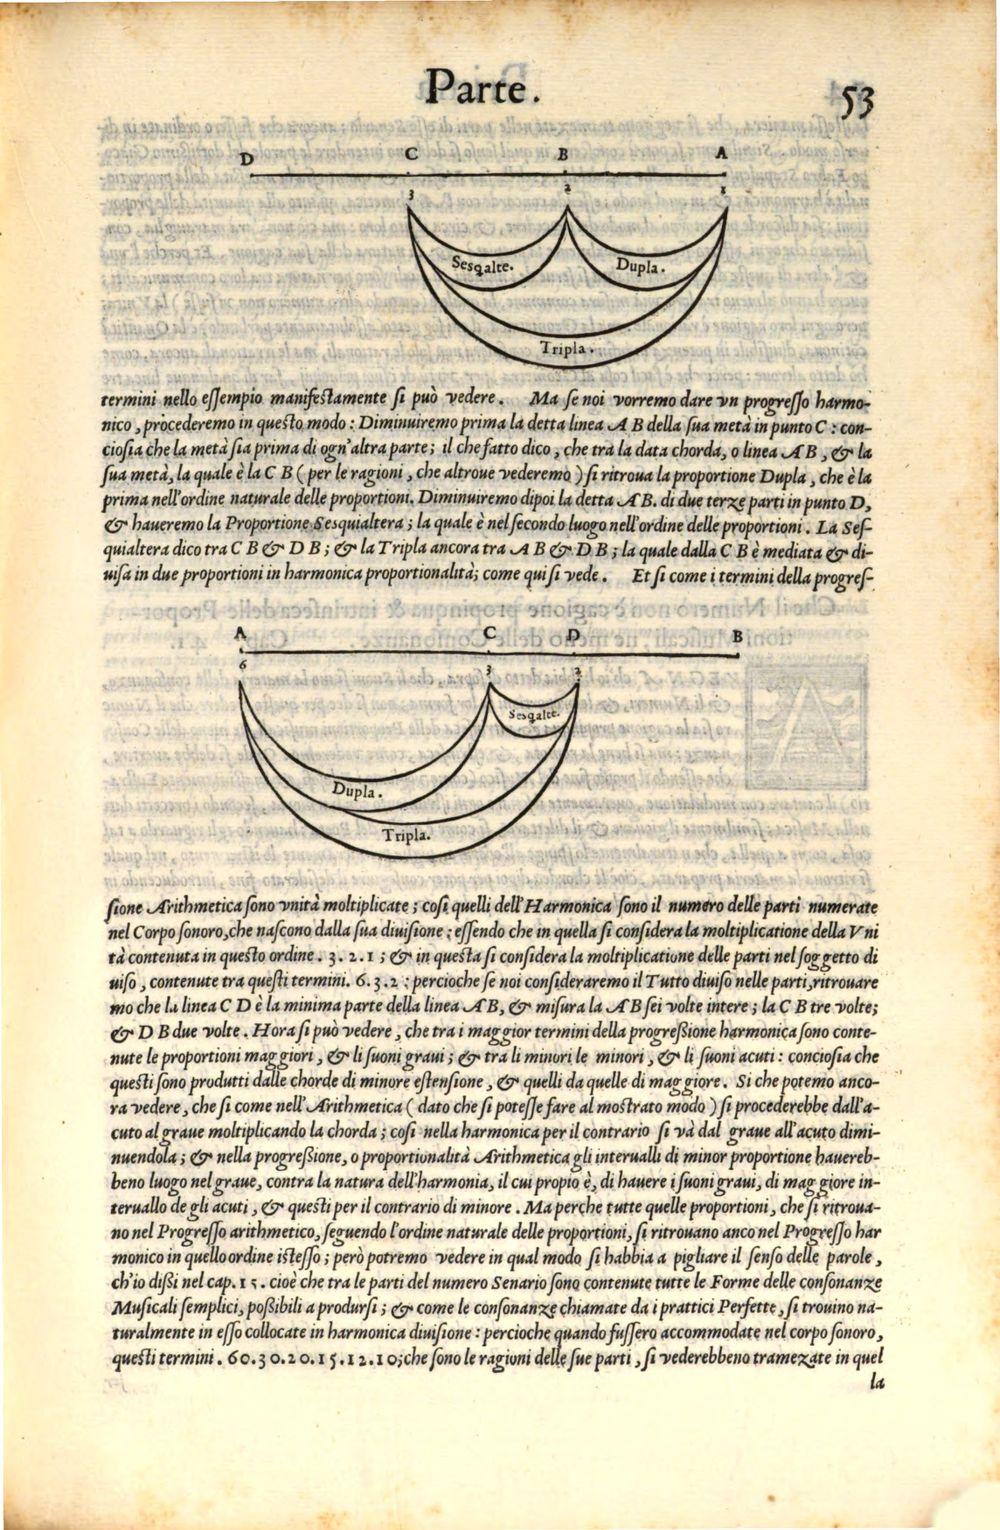 Parte.
53
D C B A
3 2 1
Sesqalte. Dupla.
Tripla.
termini nello eſſempio manifeſtamente ſi può vedere. Ma ſe noi vorremo dare vn progreſſo harmo-
nico, procederemo in queſto modo: Diminuiremo prima la detta linea A B della ſua metà in punto C: con-
cioſia che la metà ſia prima di ogn'altra parte; il che fatto dico, che tra la data chorda, o linea A B, & la
ſua metà, la quale è la C B (per le ragioni, che altroue vederemo) ſi ritroua la proportione Dupla, che è la
prima nell'ordine naturale delle proportioni. Diminuiremo dipoi la detta A B. di due terze parti in punto D,
& haueremo la Proportione Sesquialtera; la quale è nel ſecondo luogo nell'ordine delle proportioni. La Seſ-
quialtera dico tra C B & D B; & la Tripla ancora tra A B & D B; la quale dalla C B è mediata & di-
uiſa in due proportioni in harmonica proportionalità; come qui ſi vede. Et ſi come i termini della progreſ-
A C D B
6 3 2
Sesqalte.
Dupla.
Tripla.
ſione Arithmetica ſono vnità moltiplicate; coſi quelli dell'Harmonica ſono il numero delle parti numerate
nel Corpo ſonoro, che naſcono dalla ſua diuiſione; eſſendo che in quella ſi conſidera la moltiplicatione della Vni
tà contenuta in queſto ordine. 3. 2. 1; & in queſta ſi conſidera la moltiplicatione delle parti nel ſoggetto di
uiſo, contenute tra queſti termini. 6. 3. 2: percioche ſe noi conſideraremo il Tutto diuiſo nelle parti, ritrouare
mo che la linea C D è la minima parte della linea A B, & miſura la A B ſei volte intere; la C B tre volte;
& D B due volte. Hora ſi può vedere, che tra i maggior termini della progreßione harmonica ſono conte-
nute le proportioni maggiori, & li ſuoni graui; & tra li minori le minori, & li ſuoni acuti: concioſia che
queſti ſono produtti dalle chorde di minore eſtenſione, & quelli da quelle di maggiore. Si che potemo anco-
ra vedere, che ſi come nell'Arithmetica (dato che ſi poteſſe fare al moſtrato modo) ſi procederebbe dall'a-
cuto al graue moltiplicando la chorda; coſi nella harmonica per il contrario ſi và dal graue all'acuto dimi-
nuendola; & nella progreßione, o proportionalità Arithmetica gli interualli di minor proportione hauereb-
beno luogo nel graue, contra la natura dell'harmonia, il cui propio è, di hauere i ſuoni graui, di maggiore in-
teruallo de gli acuti, & queſti per il contrario di minore. Ma perche tutte quelle proportioni, che ſi ritroua-
no nel Progreſſo arithmetico, ſeguendo l'ordine naturale delle proportioni, ſi ritrouano anco nel Progreſſo har
monico in quello ordine iſteſſo; però potremo vedere in qual modo ſi habbia a pigliare il ſenſo delle parole,
ch'io dißi nel cap. 15. cioè che tra le parti del numero Senario ſono contenute tutte le Forme delle conſonanze
Muſicali ſemplici, poßibili a produrſi; & come le conſonanze chiamate da i prattici Perfette, ſi trouino na-
turalmente in eſſo collocate in harmonica diuiſione: percioche quando fuſſero accommodate nel corpo ſonoro,
queſti termini. 60. 30. 20. 15. 12. 10; che ſono le ragioni delle ſue parti, ſi vederebbeno tramezate in quel
la